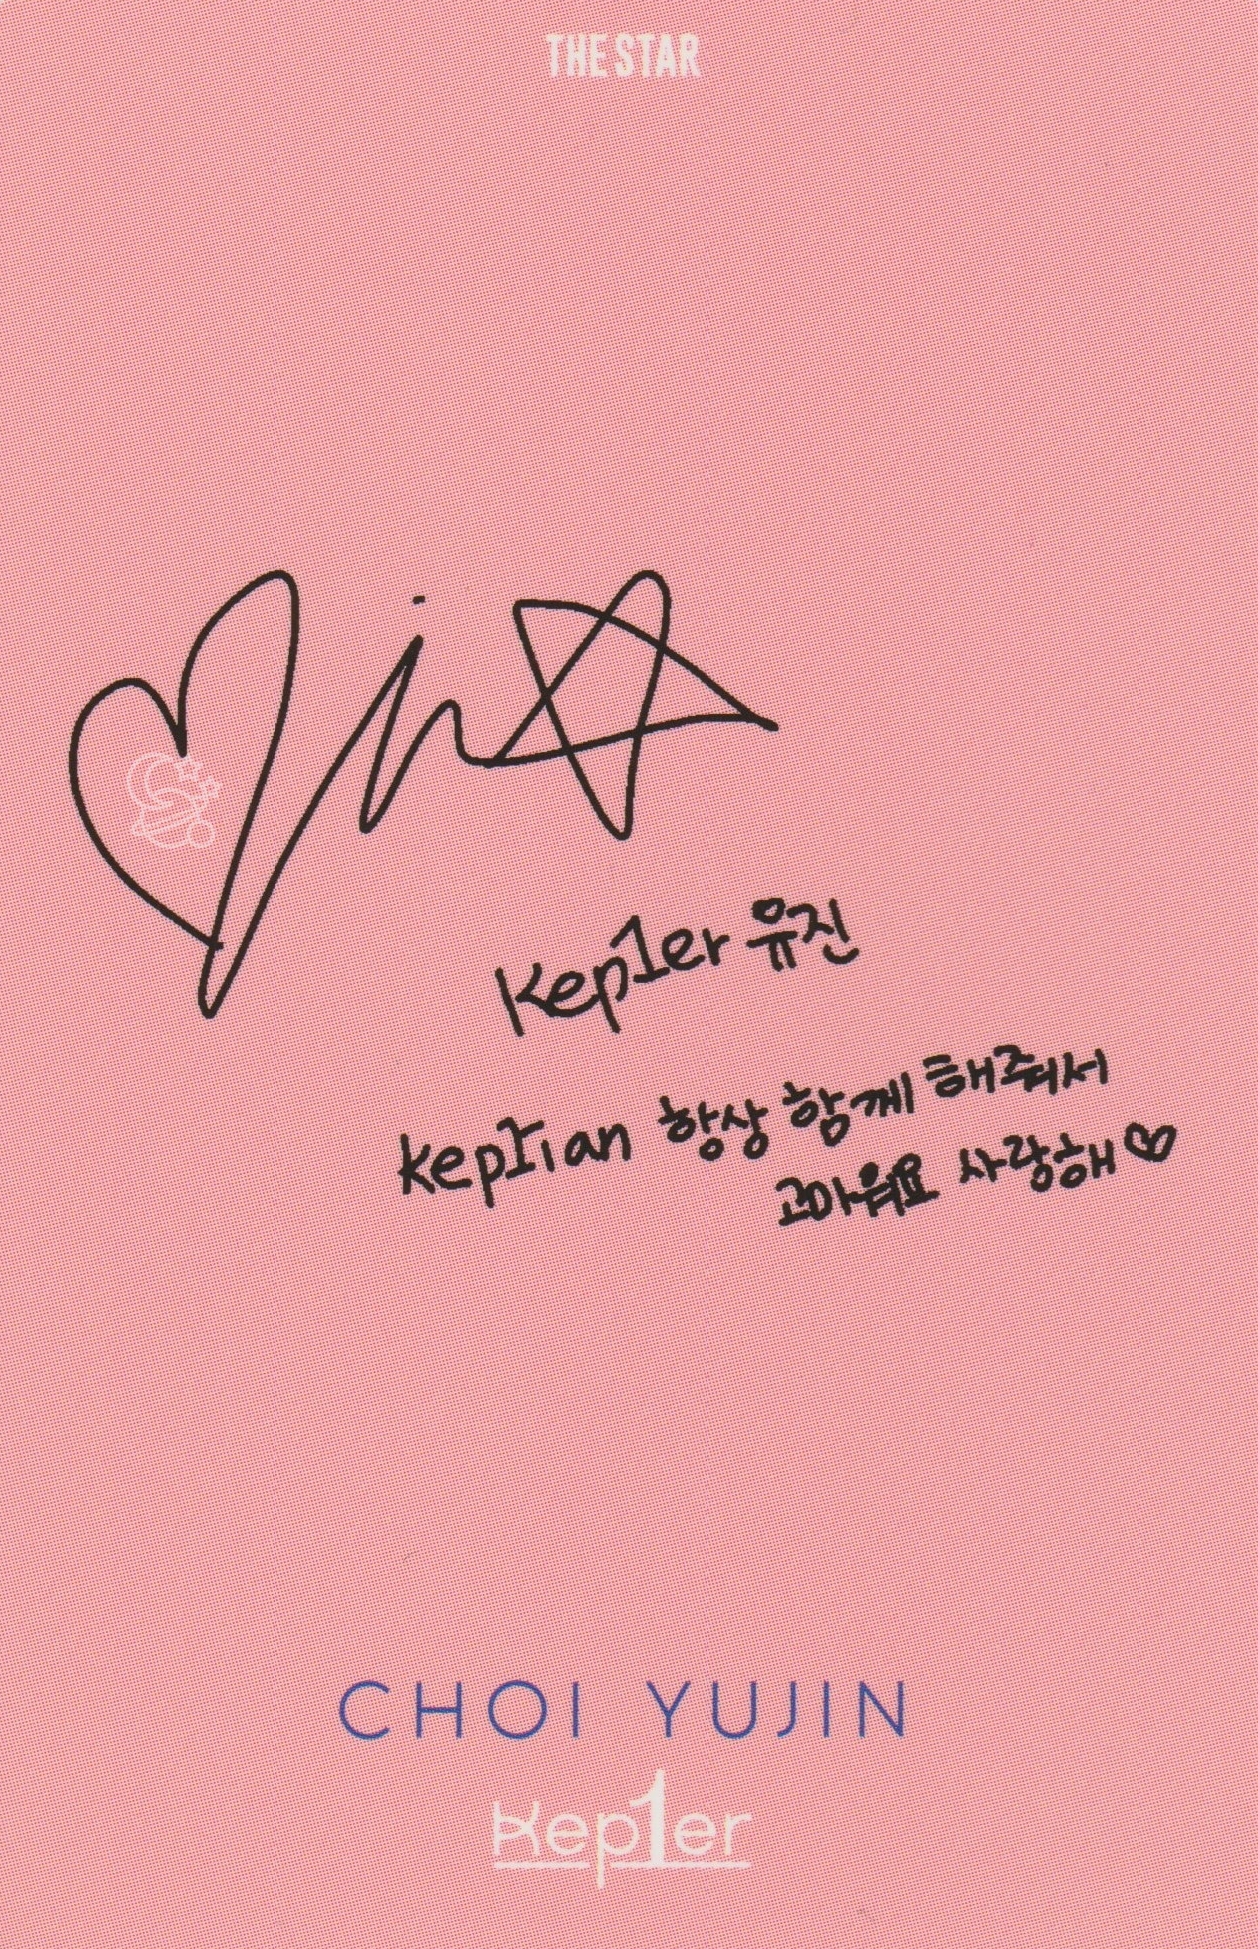 THE STAR
Kep1er 유진
kep1ian 항상 함께 해줘서
고마워요 사랑해♡
CHOI YUJIN
Kep1er